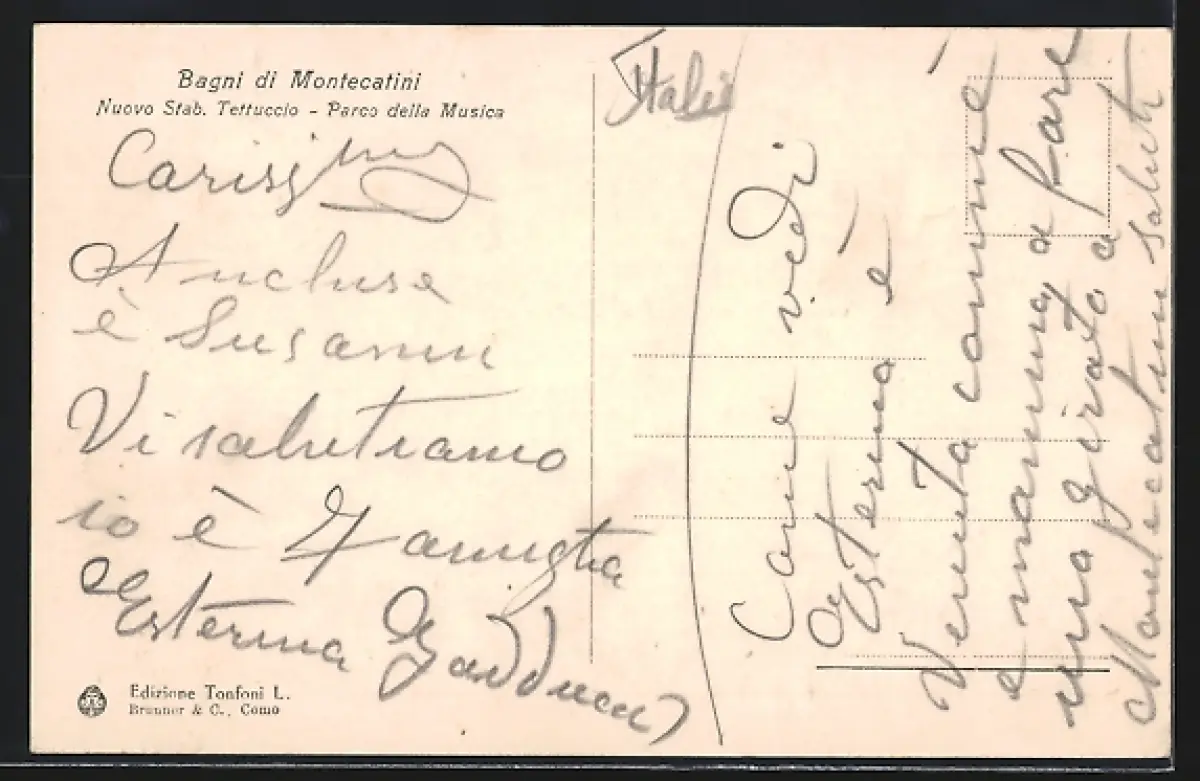 Bagni di Montecatini
Nuovo Stab. Tettuccio - Parco della Musica
Carissimi
Ancluse
è Susanni
Vi salutiamo
io è Famiglia
Esterina
Edizione Tonfoni L.
Brunner & C., Como
Italia
Come vedi
Esterina è
Venuta comme
e mamma a fare
una girato a
Montecatini saluti